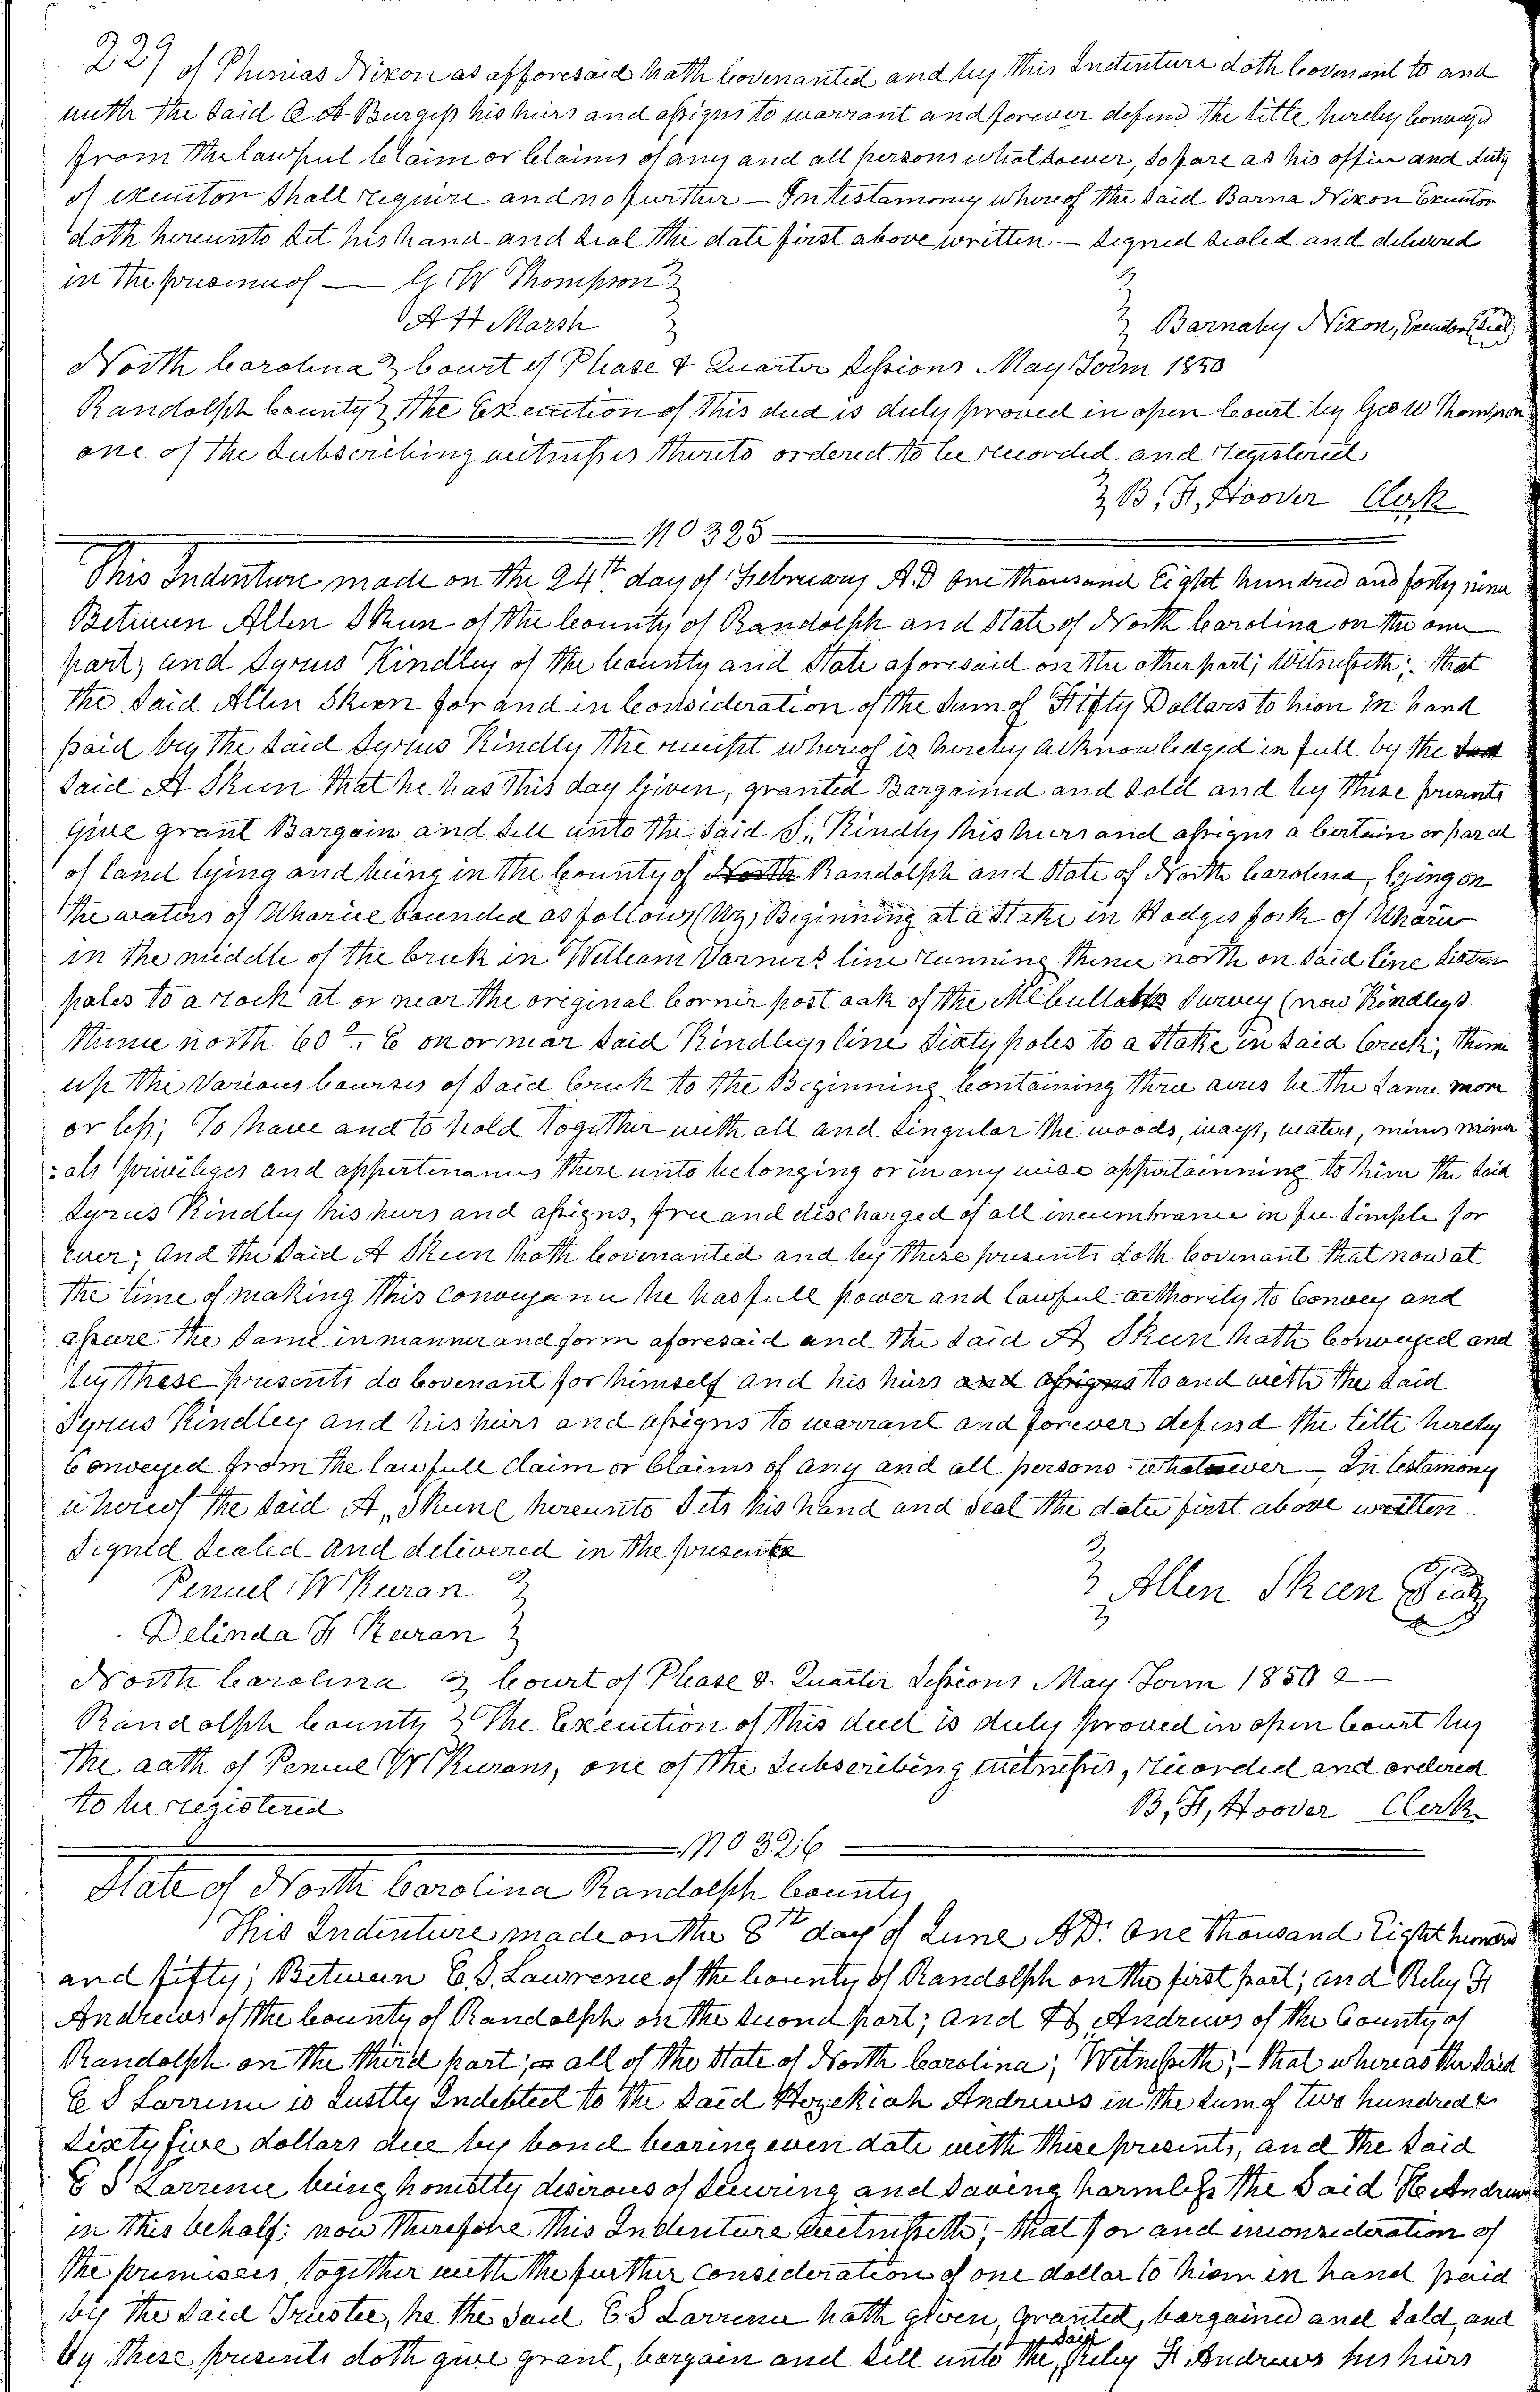 229 of Phinias Nixon as afforesaid hath Covenanted and by this Indenture doth Covenant to and
with the said C A Burgess his hiirs and assigns to warrant and forever defind the title hereby Conveyd
from the lawful Claim or Claims of any and all persons whatsoever, so fare as his office and duty
of executor shall require and no further — In testamony whereof the said Barna Nixon Executor
doth hereunto set his hand and seal the date first above written — signed sealed and deliverd
in the presence of — G W Thompson
A H Marsh
Barnaby Nixon, Executor Seal
North Carolina Court of Please & Quarter Sessions May Term 1850
Randolph County The Execution of this deed is duly proved in open Court by Geo W Thompson
one of the subscribing witnesses thereto ordered to be recorded and registered
B, F, Hoover Clerk
No 325
This Indenture made on the 24th day of February A.D One thousand Eight hundred and forty nine
Between Allen Skeen of the County of Randolph and State of North Carolina on the one
part, and Syrus Kindley of the County and State aforesaid on the other part; Witnesseth; that
the said Allen Skeen for and in Consideration of the sum of Fifty Dollars to him in hand
paid by the said Syrus Kindley the receipt whereof is hereby acknowledged in full by the
said A Skeen that he has this day Given, granted Bargained and sold and by these presents
give grant Bargain and sell unto the said S, Kindly his heirs and assigns a Certain or parcel
of land lying and being in the County of North Randolph and State of North Carolina, lying on
the waters of Uharie bounded as follows (Viz, Biginning at a Stake in Hodges fork of Uharie
in the middle of the creek in William Varners line running thence north on said line sixteen
poles to a rock at or near the original Corner post oak of the McCullock survey (now Kindleys
thence north 60° E on or near said Kindleys line sixty poles to a Stake in said Creek; thence
up the Various Courses of said Creek to the Beginning Containing three acres be the same more
or less; To have and to hold together with all and singular the woods, ways, waters, mines miner
als priviliges and appertenances there unto belonging or in any wise appertainning to him the said
Syrus Kindley his heirs and assigns, free and discharged of all incumbrance in fee simple for
ever; And the said A Skeen hath Covenanted and by these presents doth Covenant that now at
the time of making this conveyance he has full power and lawful authority to Convey and
assure the same in manner and form aforesaid and the said A Skeen hath Conveyed and
by these presents do Covenant for himself and his heirs and assigns to and with the said
Syrus Kindley and his heirs and assigns to warrant and forever defend the title hereby
Conveyed from the lawfull claim or Claims of any and all persons whatsoever — In testamony
whereof the said A, Skune hereunto sets his hand and seal the date first above written
Signed sealed and delivered in the presents
Penuel W Kuran
Allen Skeen Seal
Delinda F Kuran
North Carolina Court of Please & Quarter Sessions May Term 1850
Randolph County The Execution of this deed is duly proved in open Court by
the oath of Penuel W Kurans, one of the subscribing witnesses, recorded and ordered
to be registered B, F, Hoover Clerk
No 326
State of North Carolina Randolph County
This Indenture made on the 8th day of June AD. One thousand Eight hundred
and fifty; Between E. S. Lawrence of the County of Randolph on the first part; and Reley F
Andrews of the County of Randolph on the second part; and H Andrews of the County of
Randolph on the third part; all of the State of North Carolina; Witnesseth;- that whereas the said
E S Larrence is Justtly Indebted to the said Hezekiah Andrews in the sum of two hundred &
sixty five dollars due by bond bearing even date with these presents, and the said
E S Larrence being honesttly desirous of securing and saving harmless the said He Andrews
in this behalf: now therefore this Indenture Witnesseth;- that for and inconsideration of
the premisees together with the further consideration of one dollar to him in hand paid
by the said Trustee, he the said E S Larrence hath given, granted, bargained and sold, and
by these presents doth give grant, bargain and sell unto the said Reley F Andrews his heirs